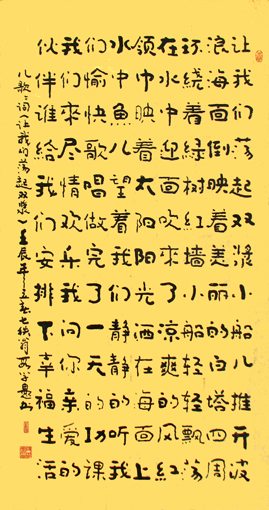 让我们荡起双桨小船儿推开波
浪海面倒映着美丽的白塔四周
环绕着绿树红墙小船轻轻飘荡
在水中迎面吹來了凉爽的风红
领巾映着太阳阳光洒在海面上
水中鱼儿望着我们静静的听我
们愉快歌唱做完了一天的功课
我们來尽情欢乐我问你亲爱的
伙伴谁给我们安排下幸福生活
儿歌一词(让我们荡起双桨)壬辰年